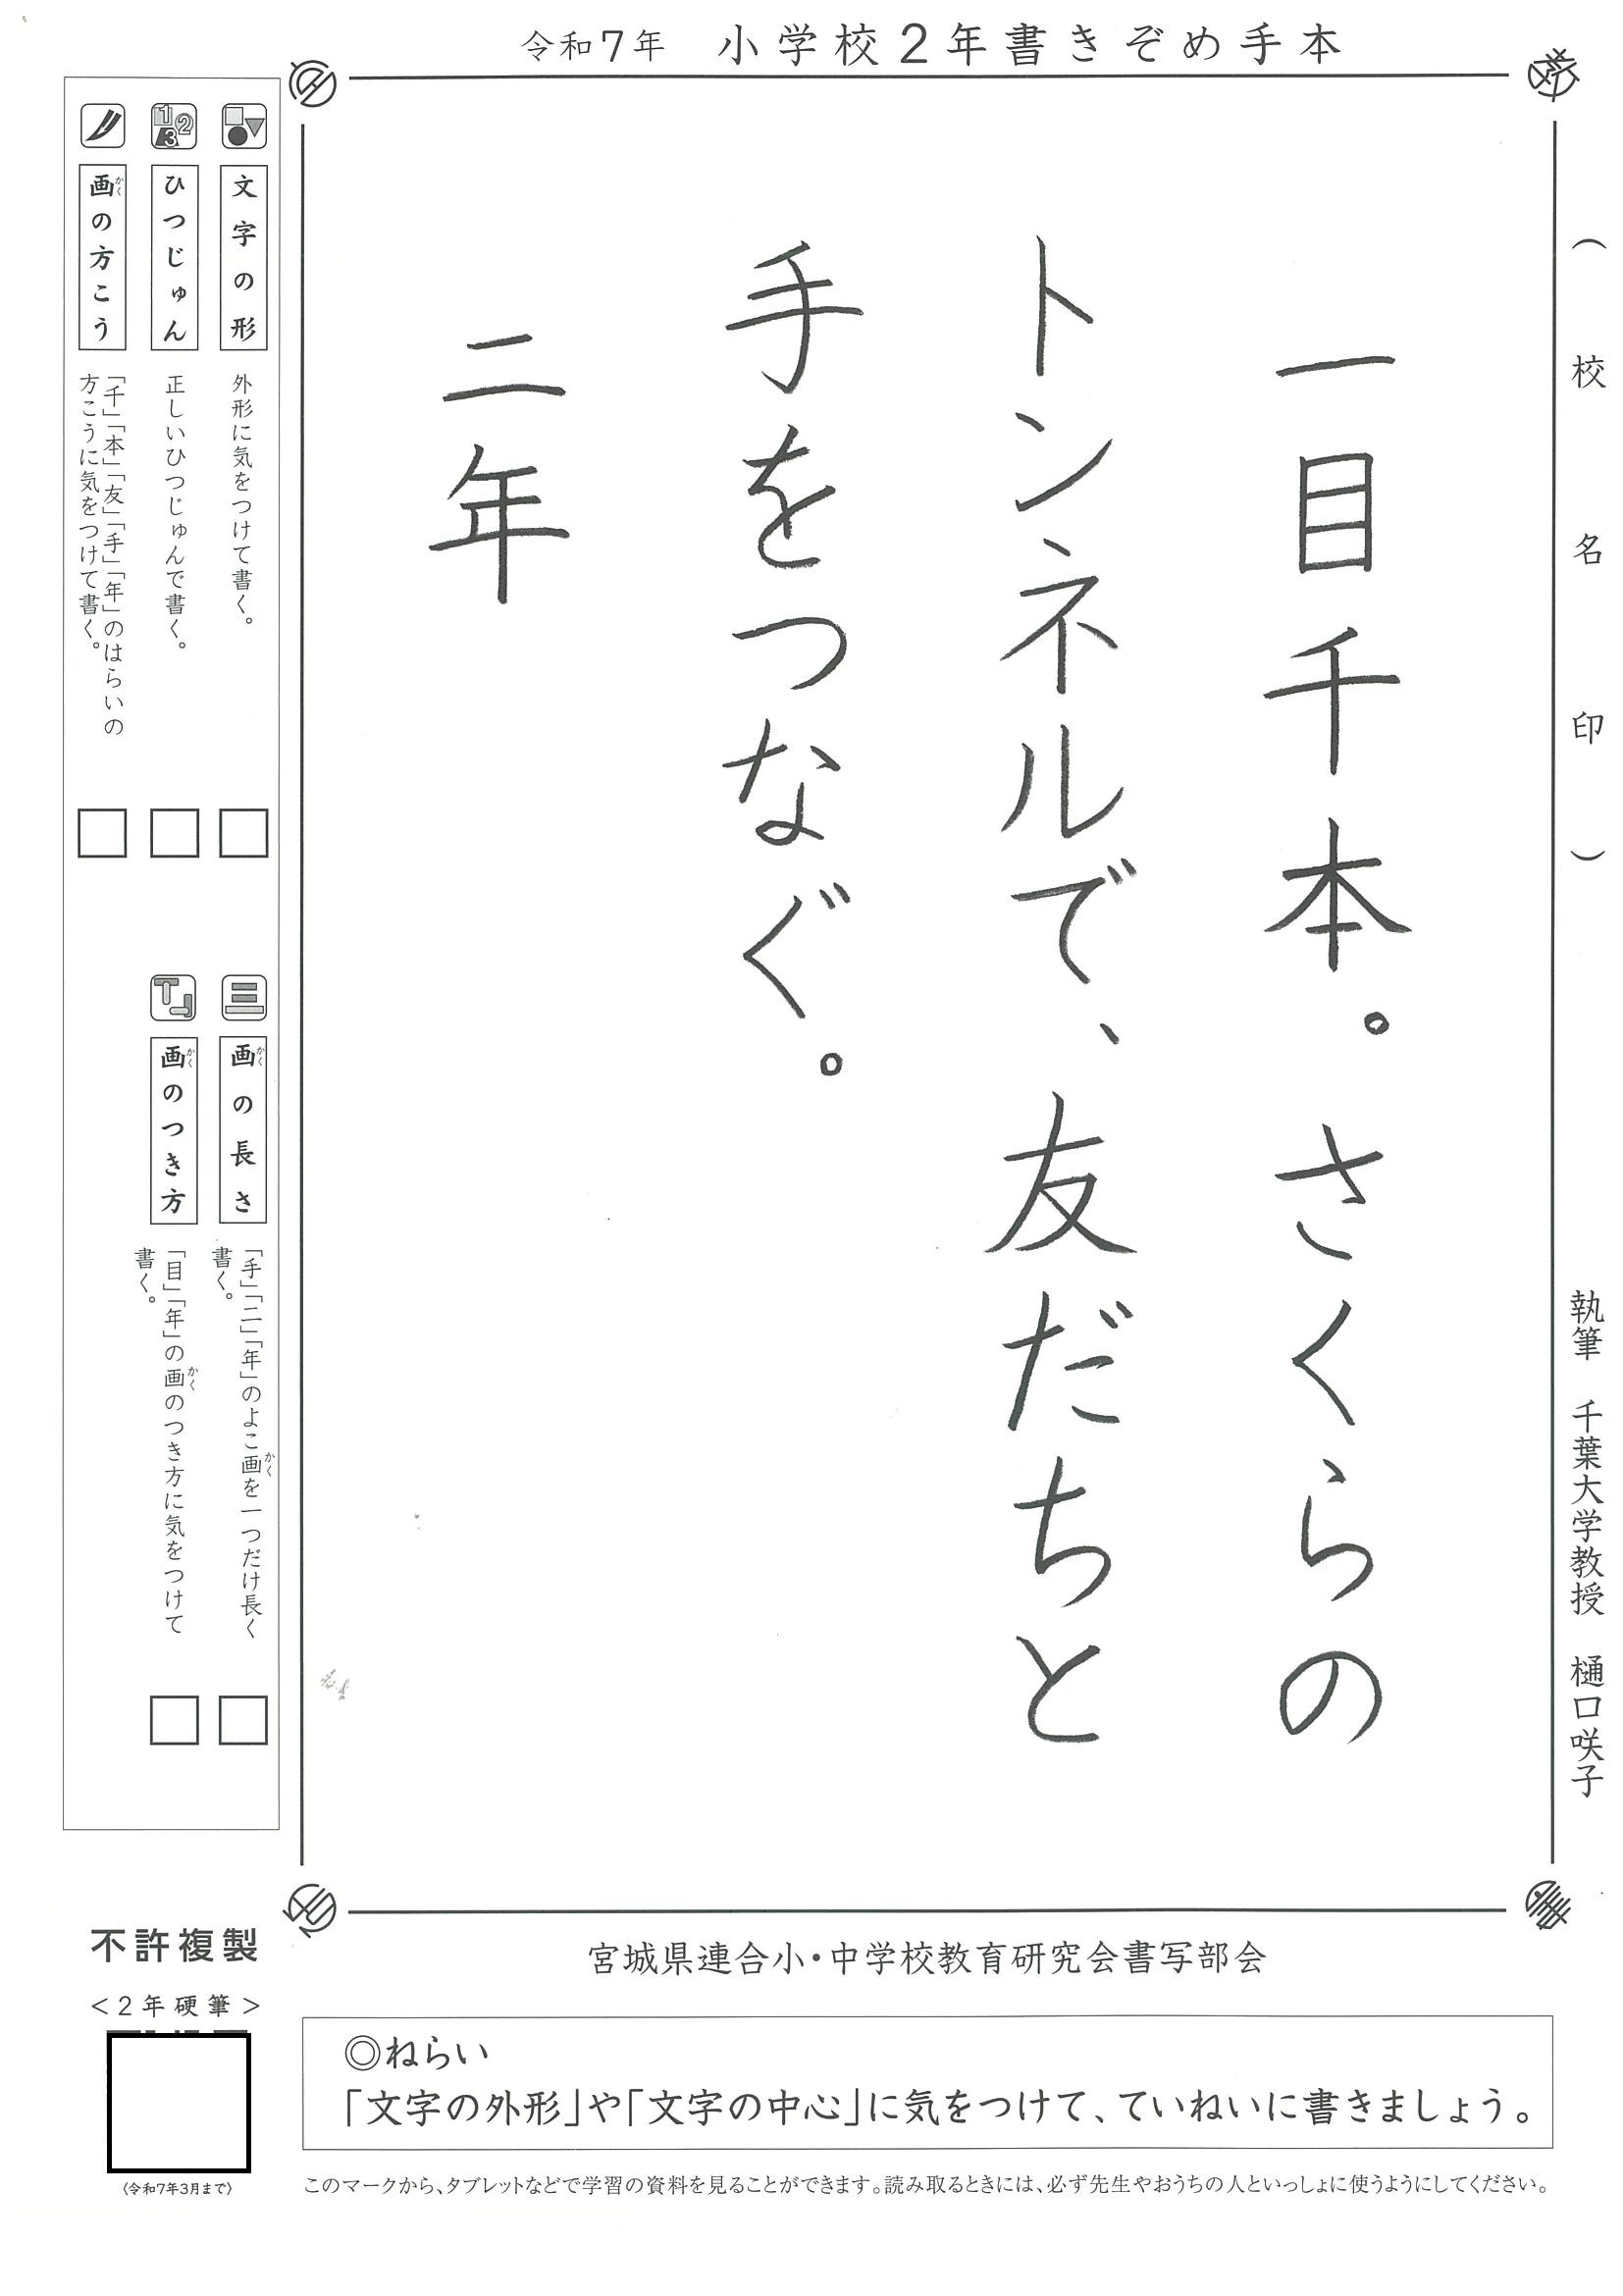 令和7年　小学校2年書きぞめ手本
（校名印）
執筆　千葉大学教授　樋口咲子
一目千本。さくらの
トンネルで、友だちと
手をつなぐ。
二年
文字の形
外形に気をつけて書く。
ひつじゅん
正しいひつじゅんで書く。
画の方こう
かく
「千」「本」「友」「手」「年」のはらいの
方こうに気をつけて書く。
画の長さ
かく
「手」「二」「年」のよこ画を一つだけ長く
かく
書く。
画のつき方
かく
「目」「年」の画のつき方に気をつけて
かく
書く。
宮城県連合小・中学校教育研究会書写部会
不許複製
<2年硬筆>
〈令和7年3月まで〉
◎ねらい
「文字の外形」や「文字の中心」に気をつけて、ていねいに書きましょう。
このマークから、タブレットなどで学習の資料を見ることができます。読み取るときには、必ず先生やおうちの人といっしょに使うようにしてください。